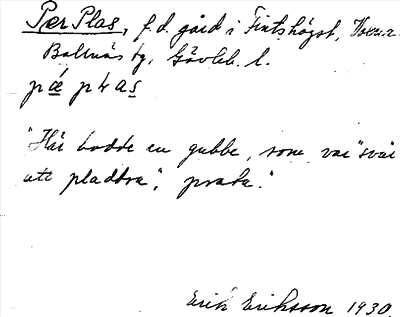 Per Plas, f.d. gård i Flintshögst,
Bollnäs tg, Gävleb. l.
pǽ plas
"Här bodde en gubbe, som var "svår
att pladdra", prata."
Erik Eriksson 1930.